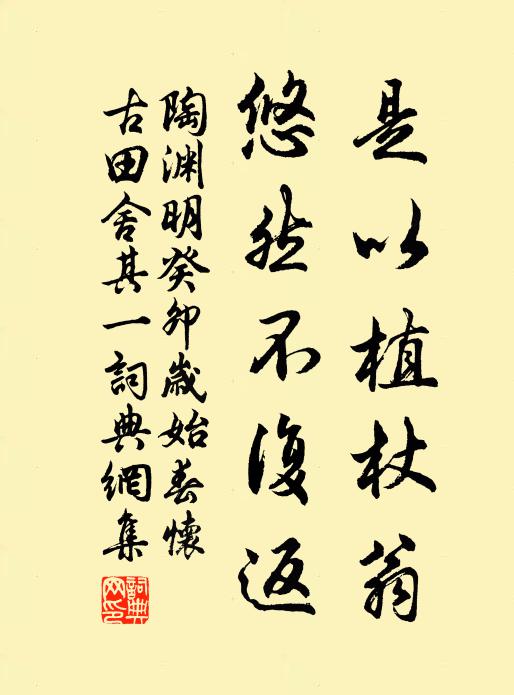 是以植杖翁
悠然不復返
陶渊明癸卯歲始春懷
古田舍其一詞典網集
詞典网印